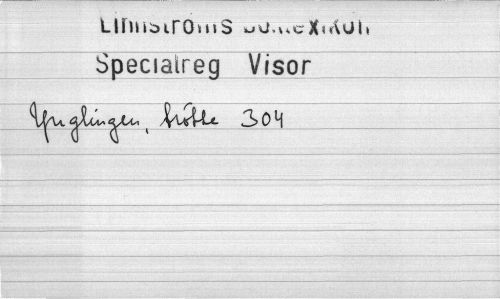 Linnströms Boklexikon
Specialreg Visor
Ynglingen, trötte 304